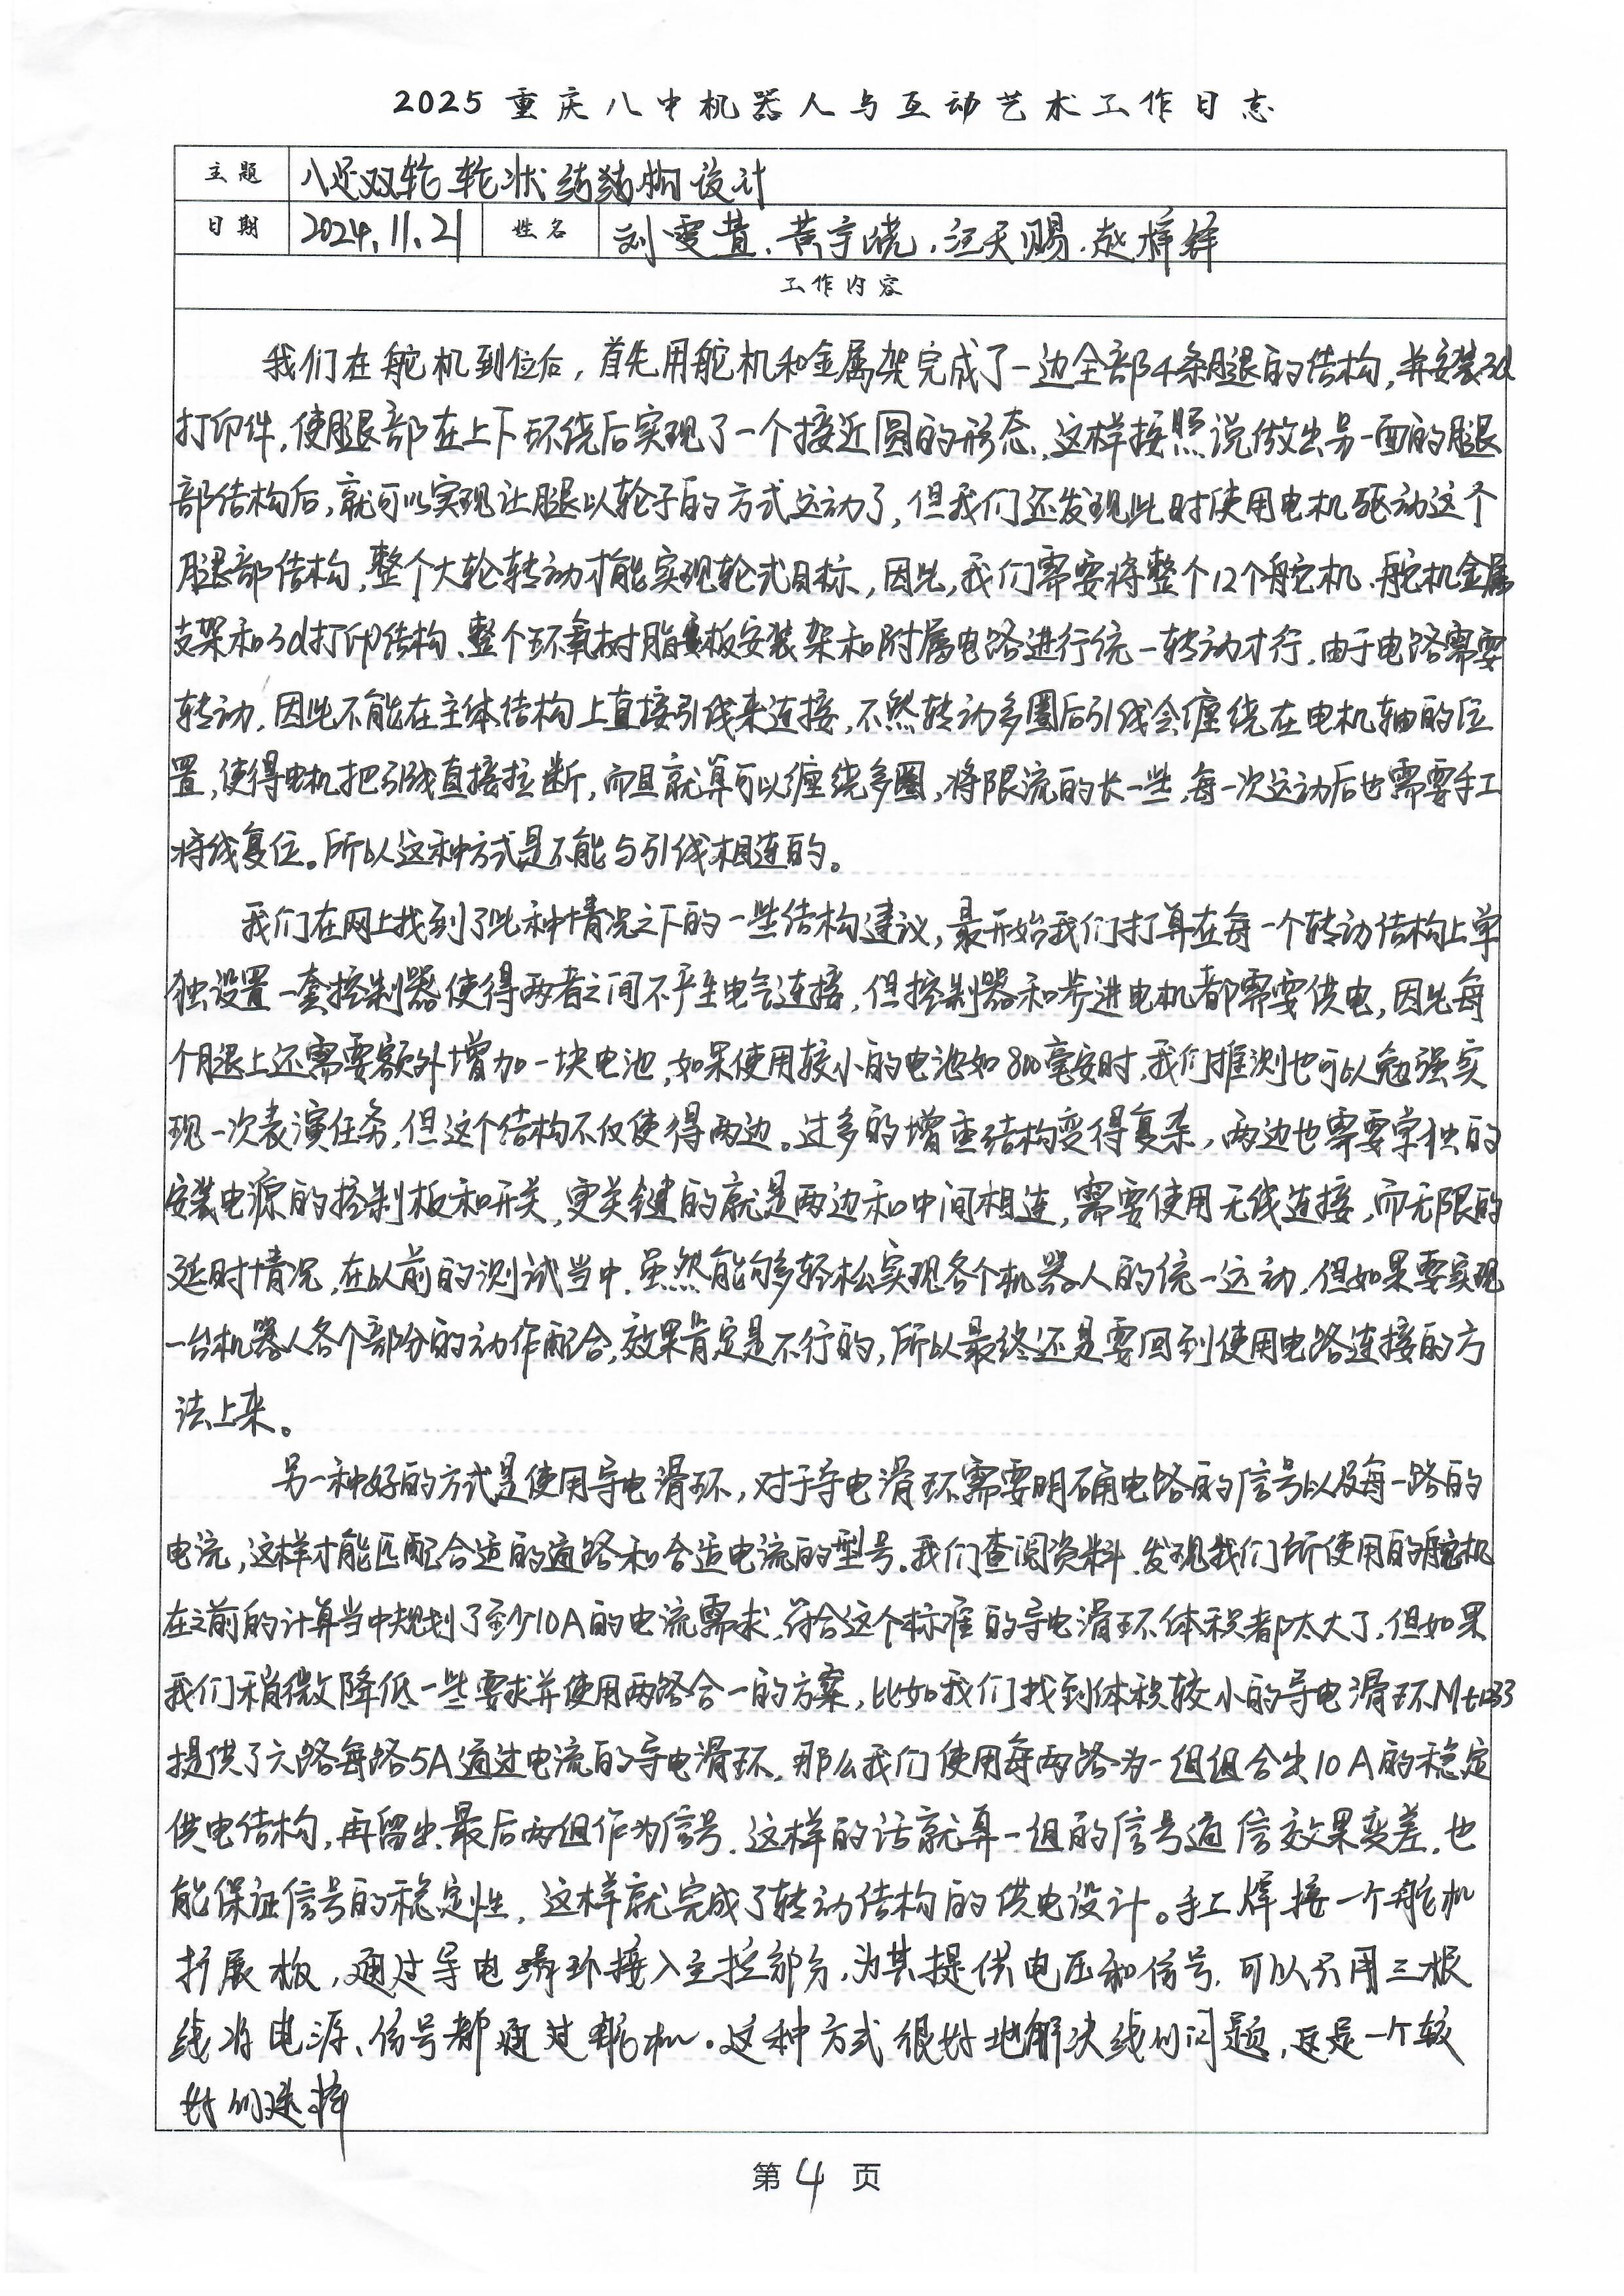 2025重庆八中机器人与互动艺术工作日志
主题 八足双轮轮状结构设计
日期 2024.11.21 姓名 刘雯萱、黄宇晓、汪天赐、赵梓铎
工作内容
我们在舵机到位后，首先用舵机和金属架完成了一边全部4条腿的结构，并安装3d
打印件，使腿部在上下环绕后实现了一个接近圆的形态，这样按照说做出另一面的腿
部结构后，就可以实现让腿以轮子的方式运动了，但我们还发现此时使用电机驱动这个
腿部结构，整个大轮转动才能实现轮式目标，因此，我们需要将整个12个舵机、舵机金属
支架和3d打印结构、整个环氧树脂板安装架和附属电路进行统一转动才行，由于电路需要
转动，因此不能在主体结构上直接引线来连接，不然转动多圈后引线会缠绕在电机轴的位
置，使得电机把引线直接拉断，而且就算可以缠绕多圈，将限流的长一些，每一次运动后也需要手工
将线复位。所以这种方式是不能与引线相连的。
我们在网上找到了此种情况之下的一些结构建议，最开始我们打算在每一个转动结构上单
独设置一套控制器使得两者之间不产生电气连接，但控制器和步进电机都需要供电，因此每
个腿上还需要额外增加一块电池，如果使用较小的电池如800毫安时，我们推测也可以勉强实
现一次表演任务，但这个结构不仅使得两边。过多的增重结构变得复杂，两边也需要单独的
安装电源的控制板和开关，更关键的就是两边和中间相连，需要使用无线连接，而无限的
延时情况，在以前的测试当中，虽然能够轻松实现各个机器人的统一运动，但如果要实现
一台机器人各个部分的动作配合，效果肯定是不行的，所以最终还是要回到使用电路连接的方
法上来。
另一种好的方式是使用导电滑环，对于导电滑环需要明确电路的信号以及每一路的
电流，这样才能匹配合适的通路和合适电流的型号。我们查阅资料，发现我们所使用的舵机
在之前的计算当中规划了至少10A的电流需求，符合这个标准的导电滑环体积都太大了，但如果
我们稍微降低一些要求并使用两路合一的方案，比如我们找到体积较小的导电滑环
提供了六路每路5A通过电流的导电滑环，那么我们使用每两路为一组组合出10A的稳定
供电结构，再留出最后两组作为信号，这样的话就算一组的信号通信效果变差，也
能保证信号的稳定性，这样就完成了转动结构的供电设计。手工焊接一个舵机
扩展板，通过导电滑环接入主控部分，为其提供电压和信号，可以只用三根
线将电源、信号都通过舵机。这种方式很好地解决线的问题，这是一个较
好的选择
第4页